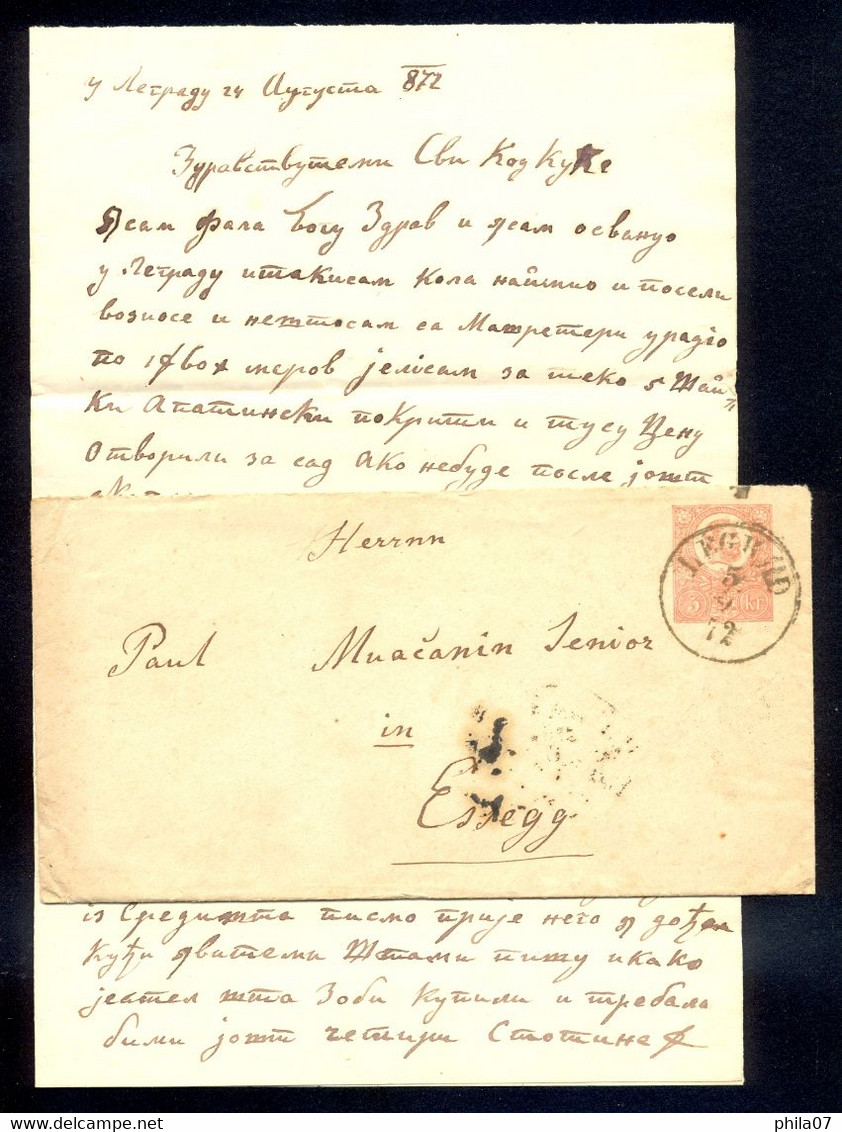 у Леграду 24 Августа 872
Здравствутеми Сви Код Куће
Ясам фала Богу Здрав и ясам освануо
у Леграду итакисам кола најмио и посели
возиосе и нештосам са
по меров јелисам за теко 5 Шай
ки Апатински покрити и тусу Цену
Отворили за сад Ако небуде после јошт
Herrnn
Paul Muačanin Senior
in
Essegg
LEGRAD
5
9
72
5 KR
из Средишта писмо прије него я дођем
Кући явитеми Штами пишу икако
јестел шта Зоби купили и требала
бими јошт четири Стотине ф
phila07